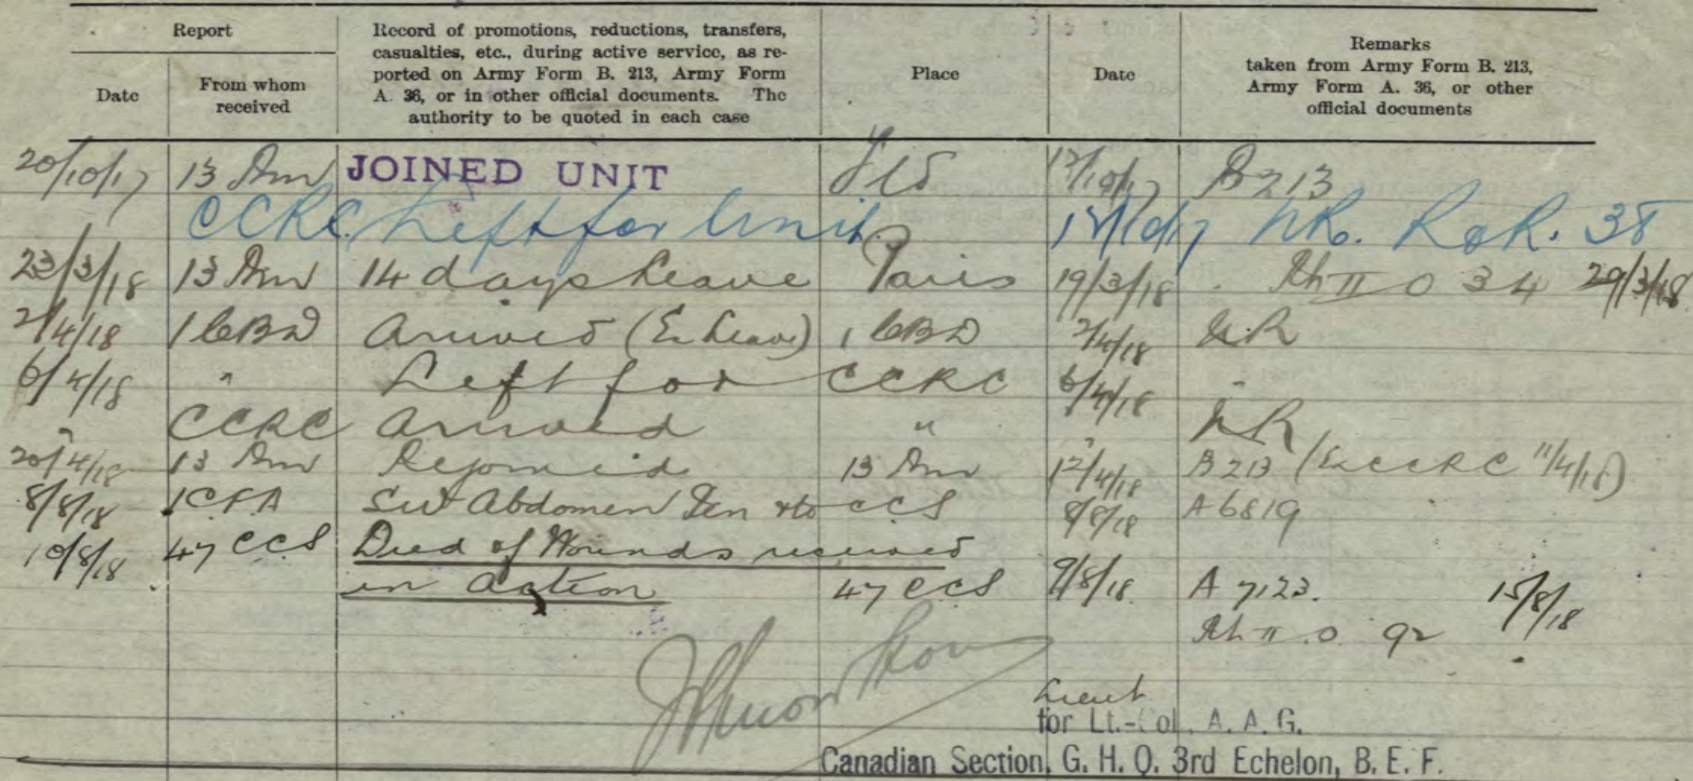 Report
Record of promotions, reductions, transfers, casualties, etc., during active service, as reported on Army Form B. 213, Army Form A. 36, or in other official documents. The authority to be quoted in each case
Place
Date
Remarks taken from Army Form B. 213, Army Form A. 36, or other official documents
Date
From whom received
20/10/17 13 JOINED UNIT Fld 17/10/17 B213
CCRC Left for Unit. NR. 38
23/3/18 13 14 days Leave Paris 19/3/18 34 29/3/18
2/4/18 1 CBD arrived (Ex Leave) 1 CBD 2/4/18 NR
6/4/18 " Left for CCRC 6/4/18 "
" CCRC arrived " " NR
20/4/18 13 Rejoined 13 12/4/18 B213 (Ex CCRC 11/4/18)
8/8/18 1 CFA Abdomen to CCS 8/8/18 A 6819
10/8/18 47 CCS Died of Wounds received
in action 47 CCS 9/8/18 A 7123. 15/8/18
92
Lieut
for Lt.-Col. A. A. G.
Canadian Section, G. H. Q. 3rd Echelon, B. E. F.